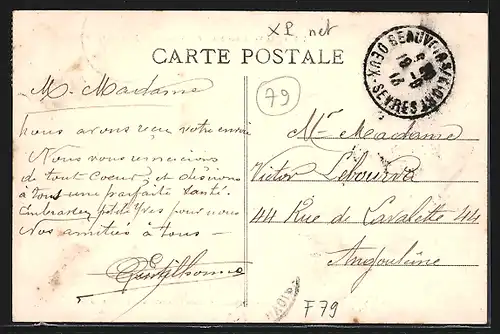 XP net
CARTE POSTALE
BEAUVOIR-S-NIORT
DEUX-SEVRES
79
M. Madame
Nous avons reçu votre envoi
Nous vous remercions
de tout Coeur et désirons
à tous une parfaite Santé.
Embrassez ptite Yves pour nous
Nos amitiés à tous —
Gentilhomme
Mr Madame
Victor
44 Rue de Lavalette 44
Angoulême
F79